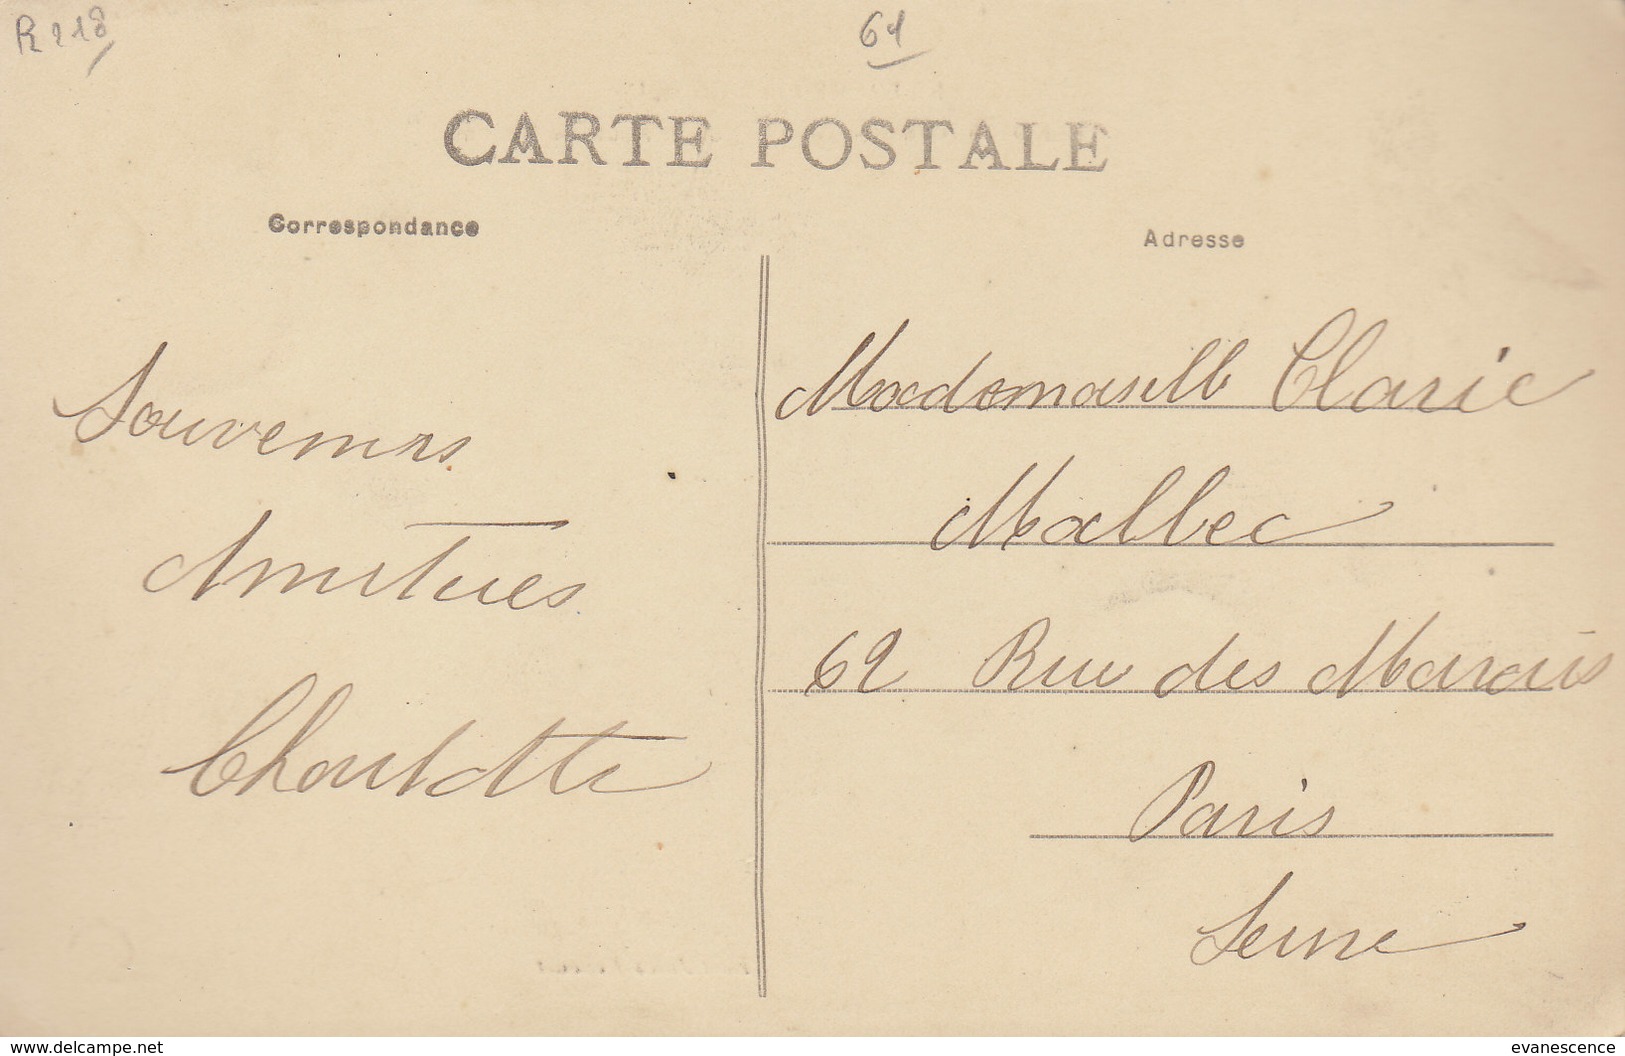 R218
61
CARTE POSTALE
Correspondance
Adresse
Souvenirs
Amitiées
Charlotte
Mademoiselle Clarie
Malbec
62 Rue des Marais
Paris
Seine
www.delcampe.net
evanescence